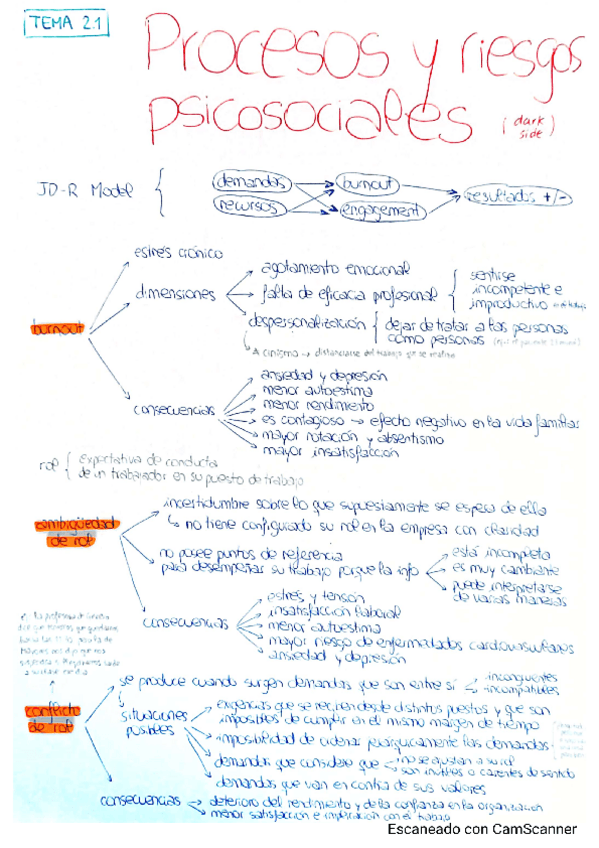 TEMA 2.1
Procesos y riesgos
psicosociales (dark side)
JD-R Model { demandas burnout resultados +/-
recursos engagement
burnout
estrés crónico
dimensiones
agotamiento emocional
falta de eficacia profesional { sentirse
incompetente e
improductivo
despersonalización { dejar de tratar a las personas
como personas
↳ cinismo → distanciarse del trabajo que se realiza
consecuencias
ansiedad y depresión
menor autoestima
menor rendimiento
es contagioso → efecto negativo en la vida familiar
mayor rotación y absentismo
mayor insatisfacción
rol { expectativa de conducta
de un trabajador en su puesto de trabajo
ambigüedad
de rol
incertidumbre sobre lo que supuestamente se espera de ella
↳ no tiene configurado su rol en la empresa con claridad
no posee puntos de referencia
para desempeñar su trabajo porque la info
está incompleta
es muy cambiante
puede interpretarse
de varias maneras
consecuencias
estrés y tensión
insatisfacción laboral
menor autoestima
mayor riesgo de enfermedades cardiovasculares
ansiedad y depresión
conflicto
de rol
se produce cuando surgen demandas que son entre sí
incongruentes
incompatibles
situaciones
posibles
exigencias que se reciben desde distintos puestos y que son
imposibles de cumplir en el mismo margen de tiempo
imposibilidad de ordenar jerárquicamente las demandas
demandas que considero que
no se ajustan a su rol
son inútiles o carentes de sentido
demandas que van en contra de sus valores
consecuencias
deterioro del rendimiento y de la confianza en la organización
menor satisfacción e implicación con el trabajo
Escaneado con CamScanner